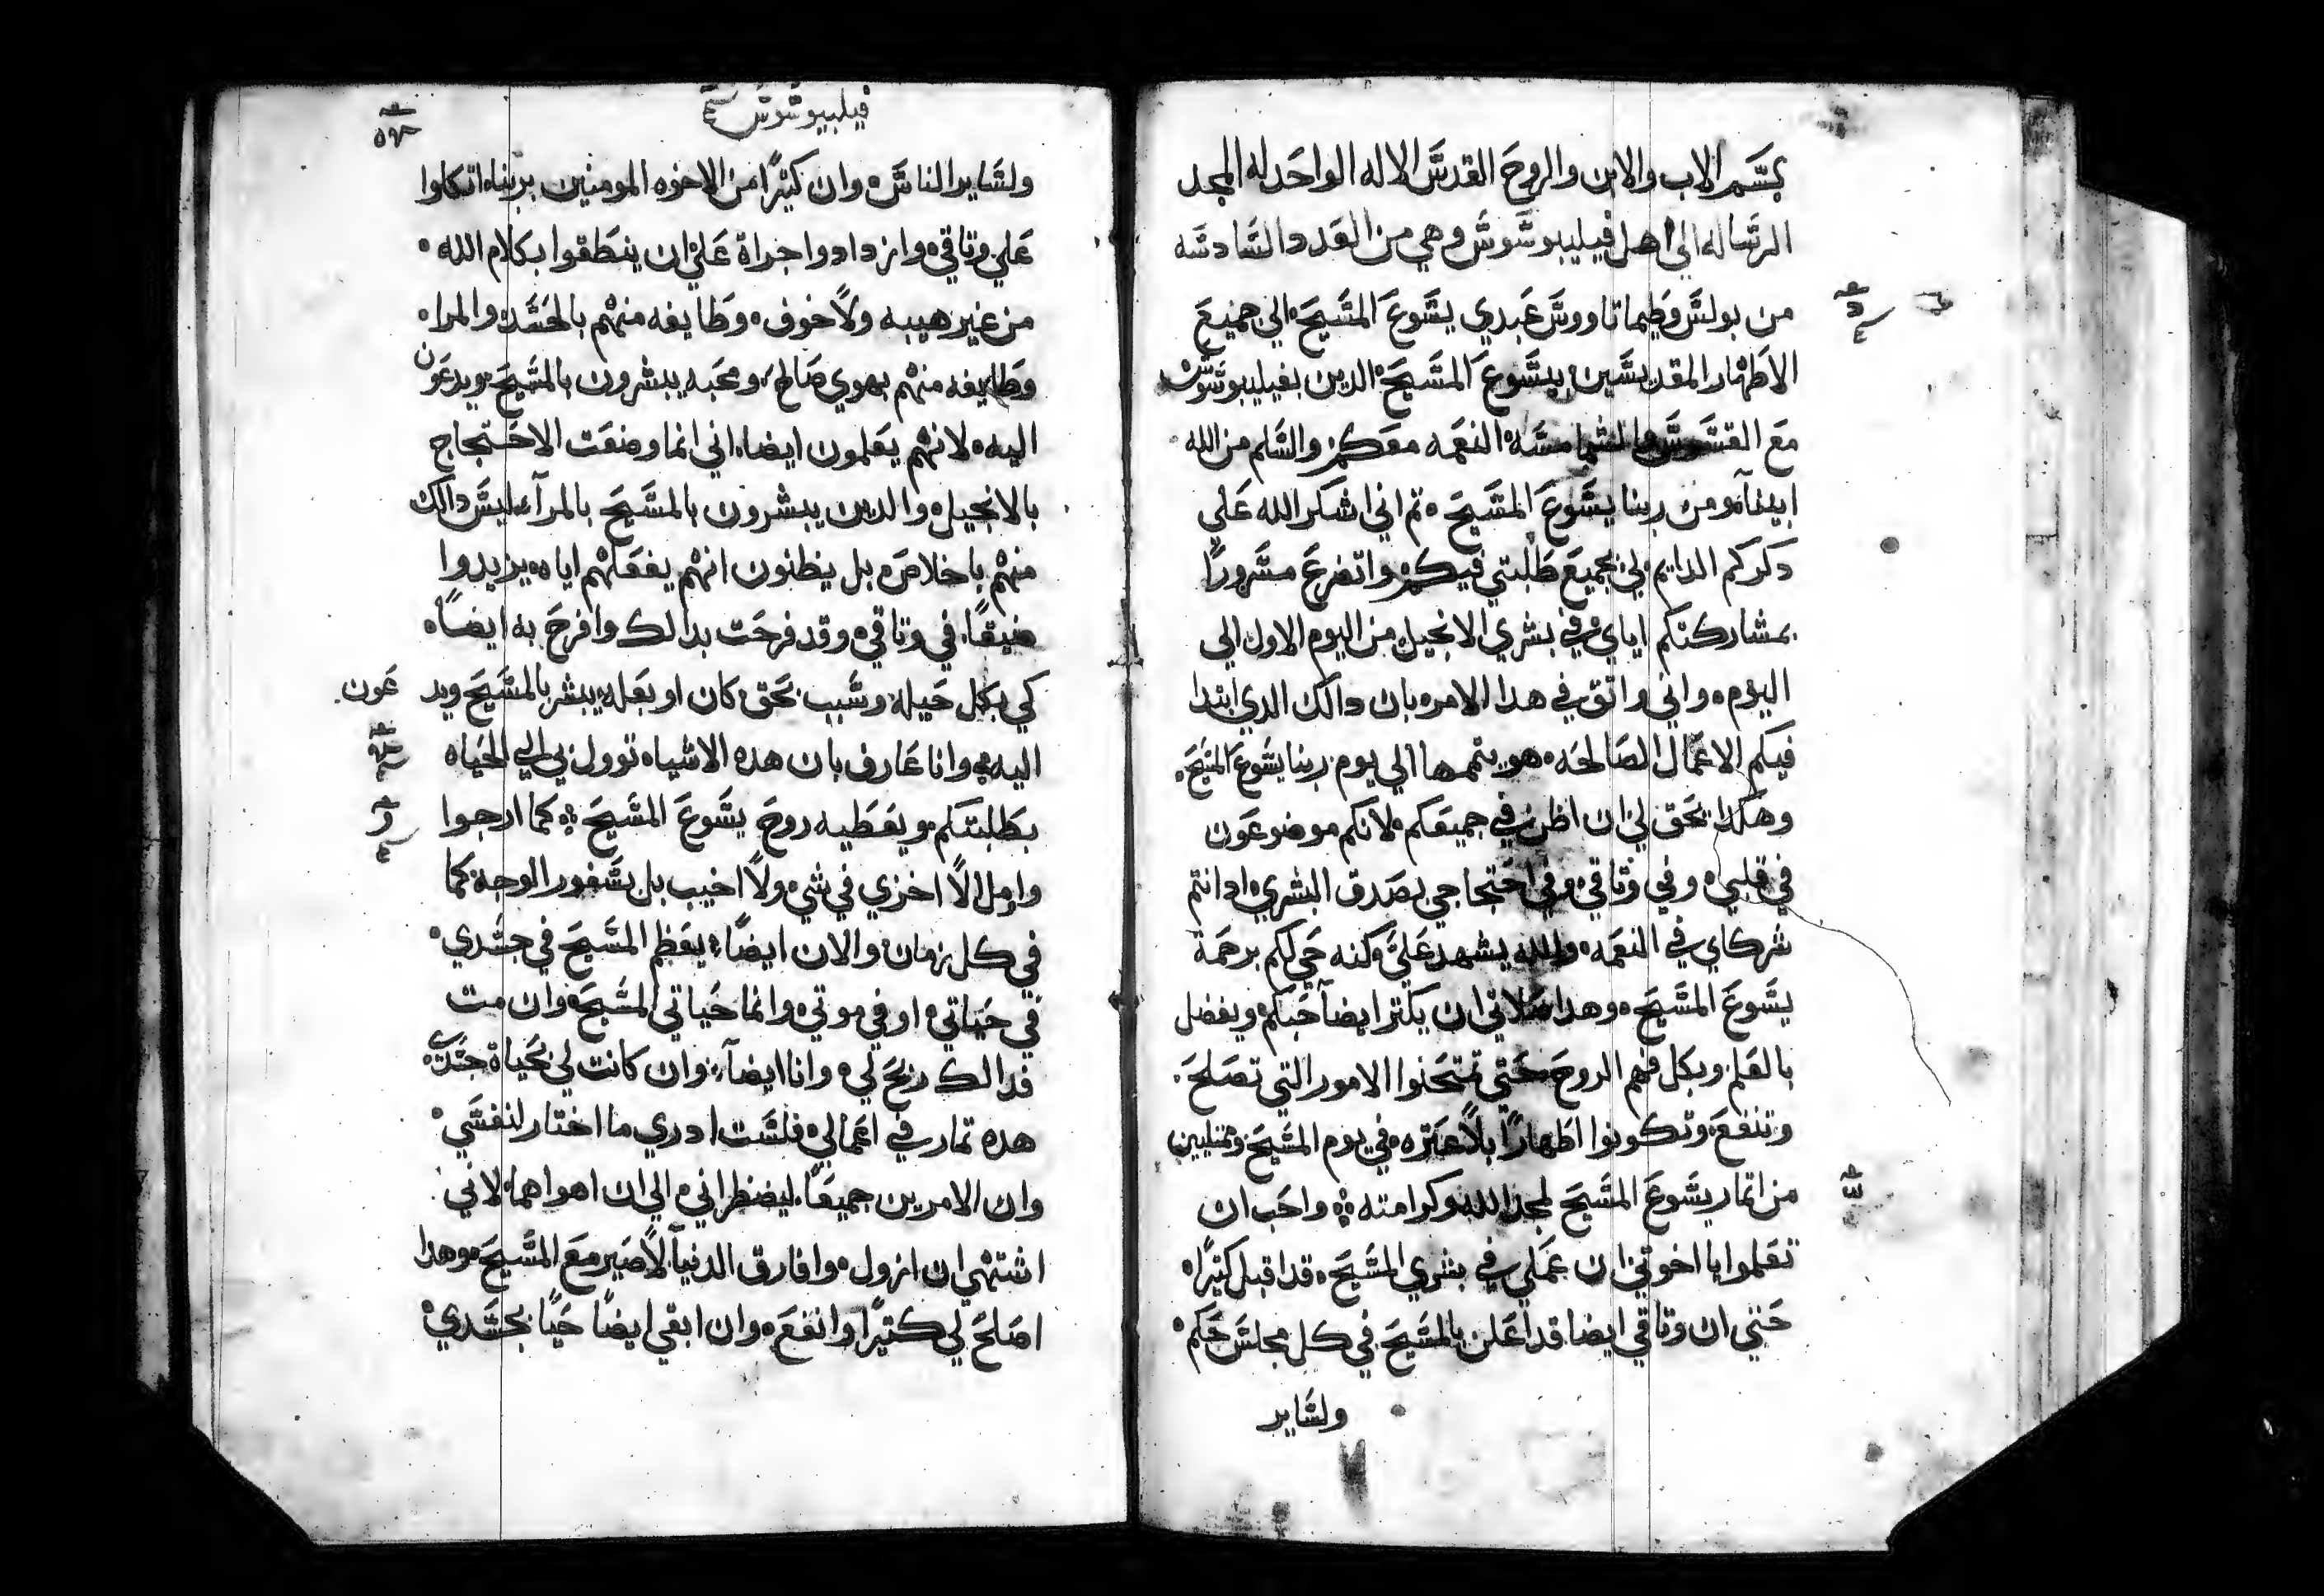 بسم الاب والابن والروح القدس الاله الواحد له المجد
الرساله الي اهل فيليبوسوس وهي من العدد السادسه
من بولس وطيماتاووس عبدي يسوع المسيح الي جميع
الاطهار المقدسين بيسوع المسيح الدين بفيليبوسوس
مع القسوس والشمامسه النعمه معكم والسلم من الله
ابينا ومن ربنا يسوع المسيح ثم اني اشكر الله علي
دكركم الدايم لي بجميع طلبتي فيكم واتضرع مسرورًا
بمشاركتكم اياي في بشري الانجيل من اليوم الاول الي
اليوم واني واثق في هدا الامر بان دالك الدي ابتدا
فيكم الاعمال الصالحه هو يتممها الي يوم ربنا يسوع المسيح
وهكدا يحق لي ان اظن في جميعكم لانكم موضوعون
في قلبي وفي وثاقي وفي احتجاجي بصدق البشري اد انتم
شركاي في النعمه والله يشهد علي وكنه حبي لكم برحمة
يسوع المسيح وهدا صلاتي ان يكثر ايضا حبكم ويفضل
بالعلم وبكل فهم الروح حتي تمتحنوا الامور التي تصلح
وتنفع وتكونوا اطهارًا بلا عثره في يوم المسيح وممتليين
من اثمار يسوع المسيح لمجد الله وكرامته واحب ان
تعلموا يا اخوتي ان عملي في بشري المسيح قد اقبل كثيرًا
حتي ان وثاقي ايضا قد اعلن بالمسيح في كل مجلس حكم
ولساير
فيلبيوسوس
ولساير الناس وان كثيرًا من الاخوه المومنين بربنا اتكلوا
علي وثاقي وازدادوا جراة علي ان ينطقوا بكلام الله
من غير هيبه ولا خوف وطايفه منهم بالحسد والمرا
وطايفه منهم بهوي صالح ومحبه يبشرون بالمسيح ويدعون
اليه لانهم يعلمون ايضا اني انما وضعت الاحتجاج
بالانجيل والدين يبشرون بالمسيح بالمرآء ليس دالك
منهم باخلاص بل يظنون انهم يفعلهم اياه يزيدوا
ضيقًا في وثاقي وقد فرحت بدالك وافرح به ايضًا
كي بكل حيله وسبب بحق كان او بعله يبشر بالمسيح ويد عون
اليه وانا عارف بان هده الاشياء توول بي الي الحياه
بطلبتكم وبعطيه روح يسوع المسيح كما ارجوا
وامل الا اخزي في شي ولا اخيب بل بسفور الوجه كما
في كل زمان والان ايضًا يعظم المسيح في جسدي
في حياتي او في موتي وانما حياتي المسيح وان مت
فدالك ربح لي وانا ايضا وان كانت لي بحياة جسدي
هده ثمار في اعمالي فلست ادري ما اختار لنفسي
وان الامرين جميعًا ليضطراني الي ان اهواهما لاني
اشتهي ان ازول وافارق الدنيا لاصير مع المسيح وهدا
اصلح لي كثيرًا وانفع وان ابقي ايضًا حيًا بجسدي